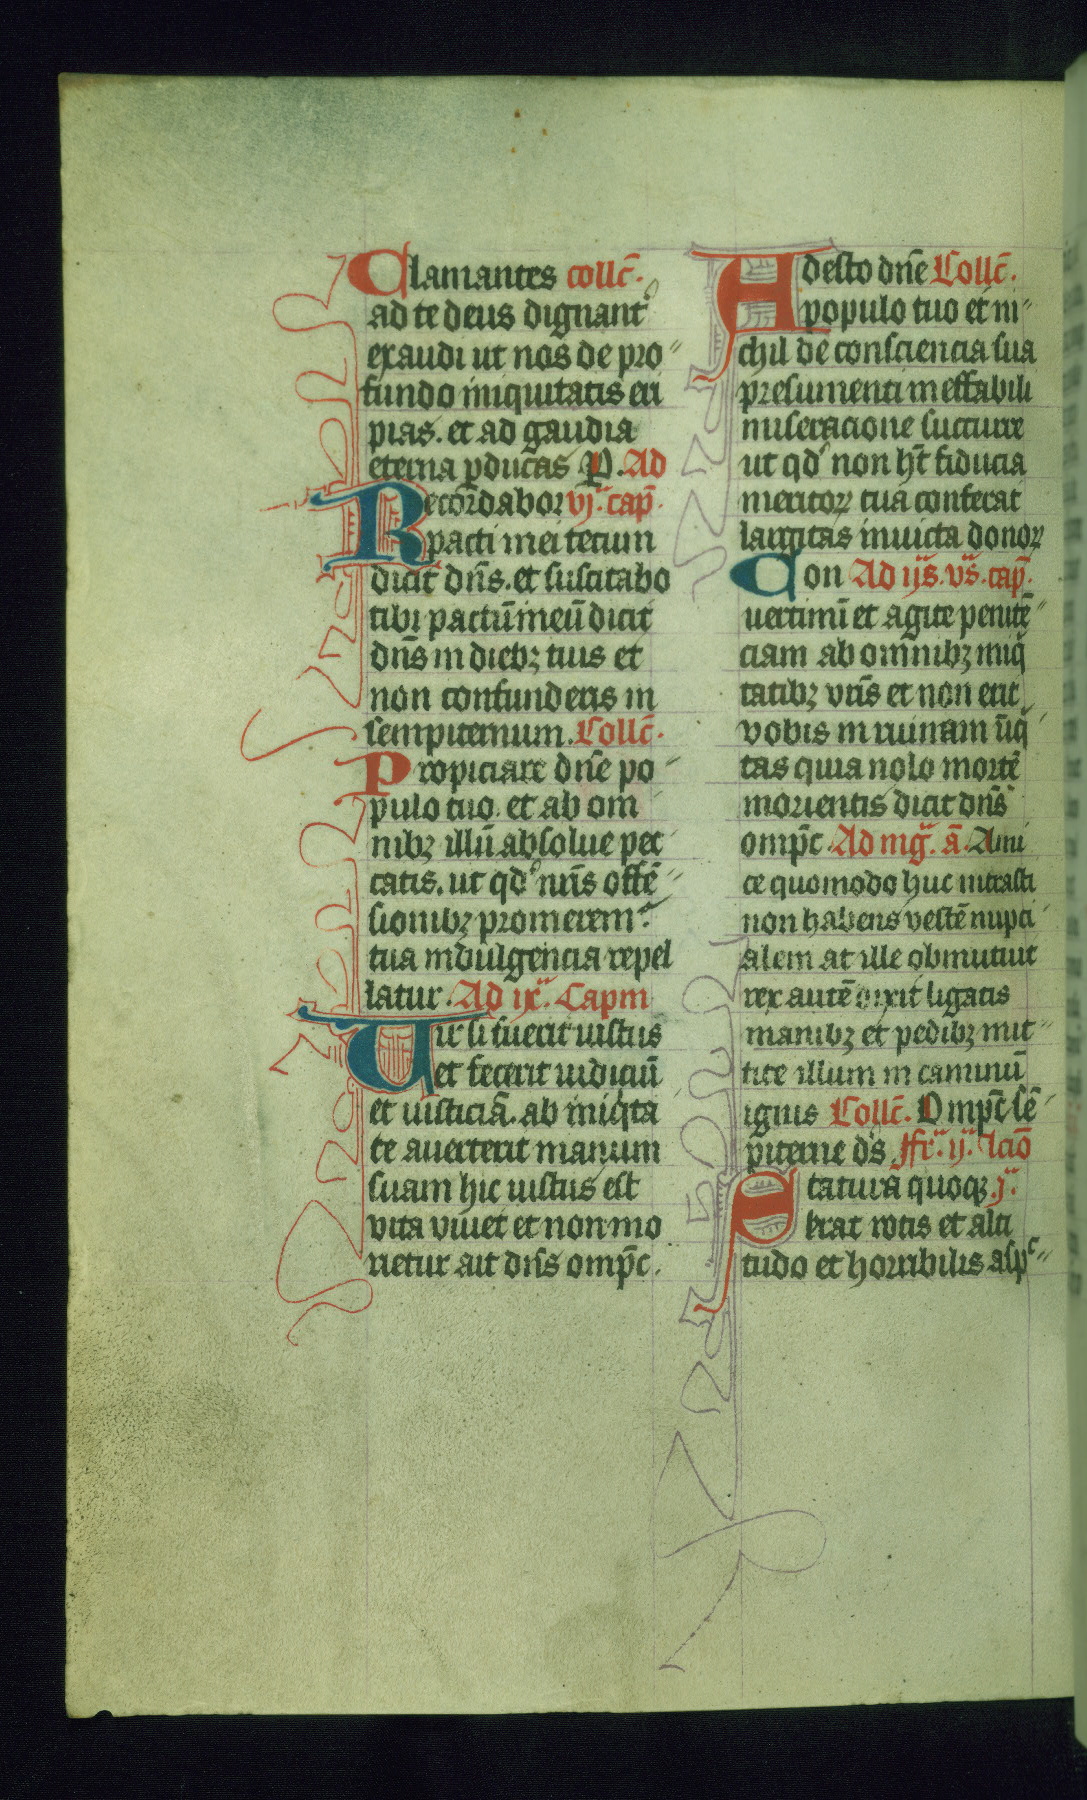 Clamantes collc̄.
ad te deus dignant᷑
exaudi ut nos de pro
fundo iniquitatis eri
pias. et ad gaudia
eterna ꝑducas P. Ad
Recordabor vj. cap̄.
pacti mei tecum
dicit dn̄s. et suscitabo
tibi pactū meū dicit
dn̄s in diebꝫ tuis et
non confunderis in
sempiternum. Collc̄.
Propiciare dn̄e po
pulo tuo. et ab om
nibꝫ illū absolue pec
catis. ut qd̓ nr̄is offē
sionibꝫ promerem᷑
tua indulgencia repel
latur. Ad ix. Capm
Vir si fuerit iustus
et fecerit iudiciū
et iusticiā. ab iniq̇ta
te auerterit manum
suam hic iustus est
vita viuet et non mo
rietur ait dn̄s omp̄c.
Adesto dn̄e Collc̄.
populo tuo et ni
chil de consciencia sua
presumenti ineffabili
miseracione succurre
ut qd̓ non hn̄t fiducia
meritoꝝ tua conferat
largitas inuicta donoꝝ
Con Ad ij s. vs̄. cap̄.
uertimī et agite penitē
ciam ab omnibꝫ iniq̇
tatibꝫ vr̄is et non erit
vobis in ruinam īiq̇
tas quia nolo mortē
morientis dicit dn̄s
omp̄c. Ad mḡ. ā. Ami
ce quomodo huc intrasti
non habens vestē nupci
alem at ille obmutuit
rex autē dixit ligatis
manibꝫ et pedibꝫ mit
tite illum in caminū
ignis Collc̄. Omp̄c sē
piterne ds̄ ffr̄. ij. lcīo
Statura quoqꝫ j.
erat rotis et alti
tudo et horribilis asp̄c